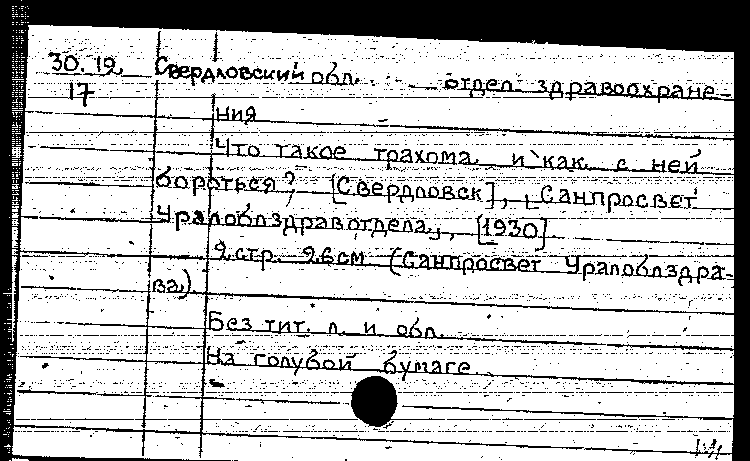 30.12. Свердловский обл. отдел здравоохране-
17 ния
Что такое трахома и как с ней
бороться? [Свердловск], Санпросвет
Уралоблздравотдела, [1930]
2 стр. 26 см (Санпросвет Уралоблздра-
ва)
Без тит. л. и обл.
На голубой бумаге